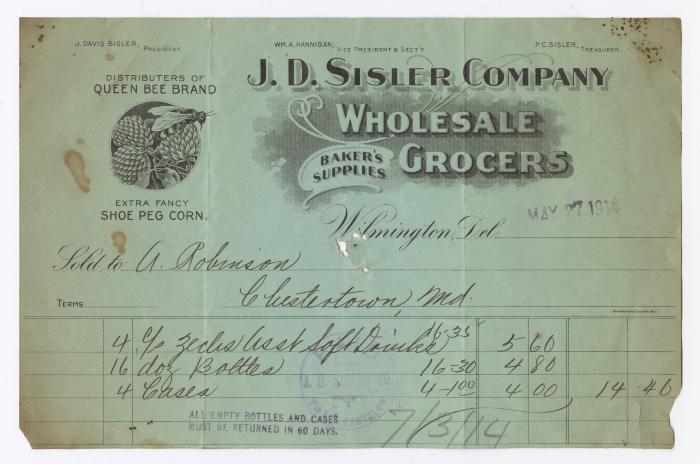 J. DAVIS SISLER, PRESIDENT. WM. A. HANNIGAN, VICE PRESIDENT & SECT'Y P. C. SISLER, TREASURER.
DISTRIBUTERS OF
QUEEN BEE BRAND
EXTRA FANCY
SHOE PEG CORN.
J. D. SISLER COMPANY
WHOLESALE
GROCERS
BAKER'S
SUPPLIES
Wilmington, Del. MAY 27 1914
Sold to A. Robinson
TERMS Chestertown, Md.
4 c/s Asst Soft Drinks 16-35 5 60
16 doz Bottles 16-30 4 80
4 Cases 4-1.00 4 00 14 40
J. D. SISLER CO.
ALL EMPTY BOTTLES AND CASES
MUST BE RETURNED IN 60 DAYS.
7/3/14